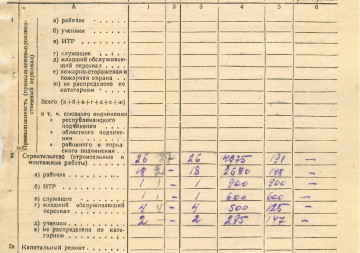 А 1 2 3 4 5 6
Промышленность (промышленно-производственный персонал)
а) рабочие
б) ученики
в) ИТР
г) служащие
д) младший обслуживающий персонал
е) пожарно-сторожевая и пожарная охрана
ж) не распределено по категориям
Всего (а+б+в+г+д+е+ж)
в т. ч. союзного подчинения
республиканского подчинения
» областного подчинения
» районного и городского подчинения
2 Строительство (строительные и монтажные работы) 26 26 4975 191 —
а) рабочие 18 — 18 2680 148 —
б) ИТР 1 — 1 900 900 —
в) служащие 1 — 1 600 600 —
г) младший обслуживающий персонал 4 — 4 500 125 —
д) ученики 2 — 2 295 147 —
е) не распределено по категориям
2а Капитальный ремонт